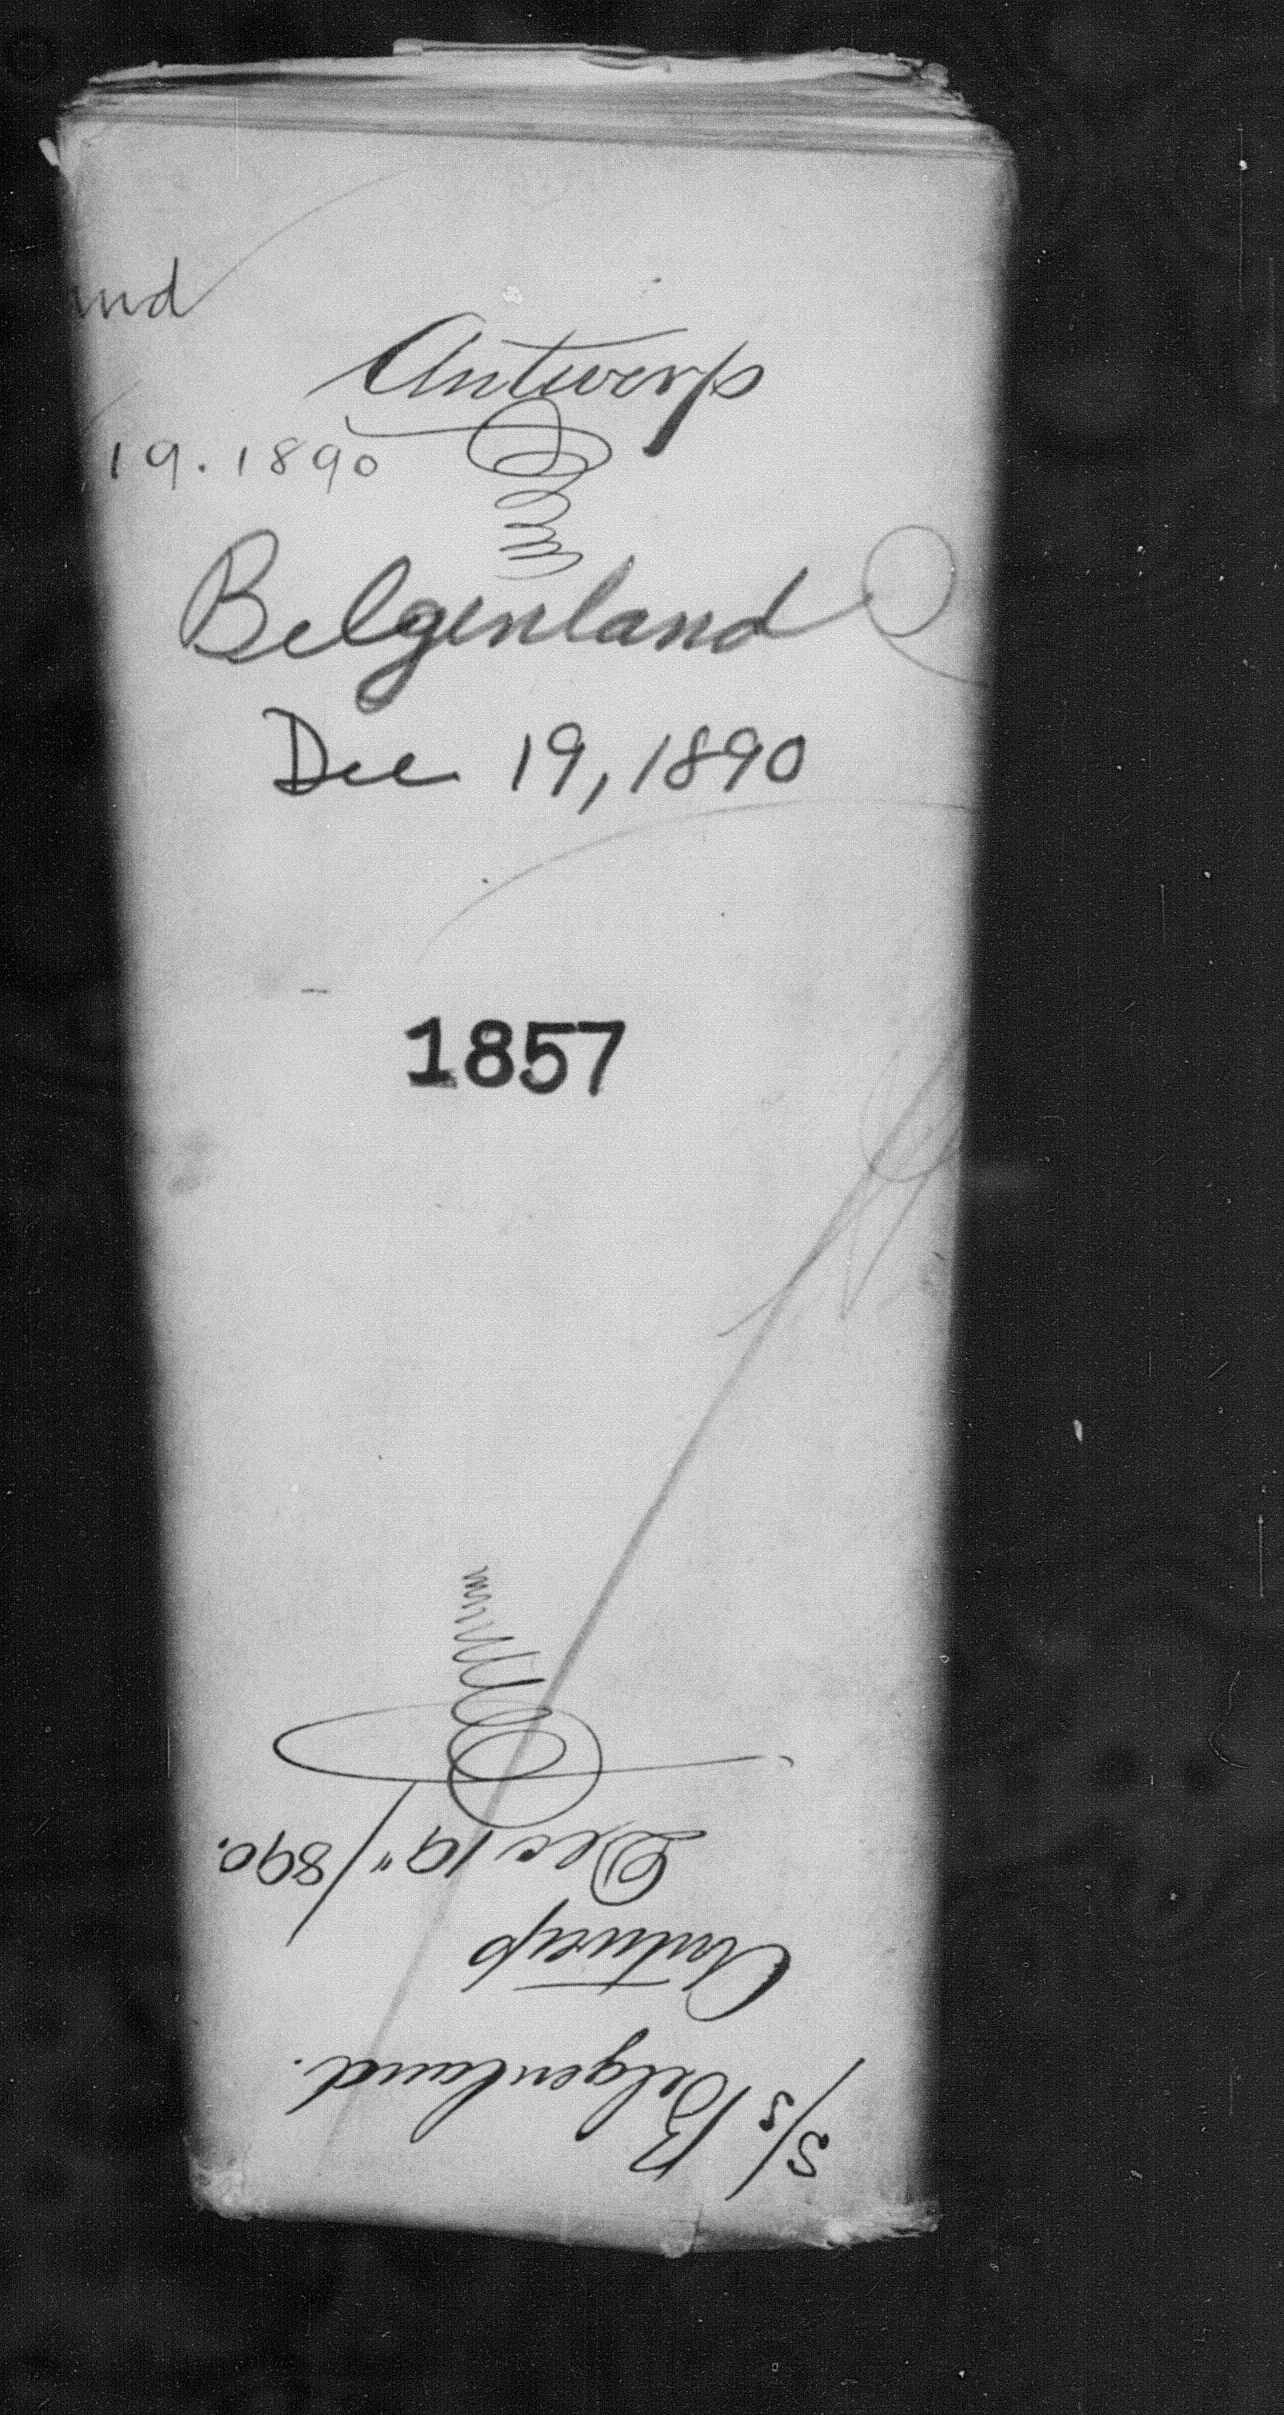 Antwerp
19.1890
Belgenland
Dec 19, 1890
1857
S/S Belgenland.
Antwerp
Dec 19"/890.